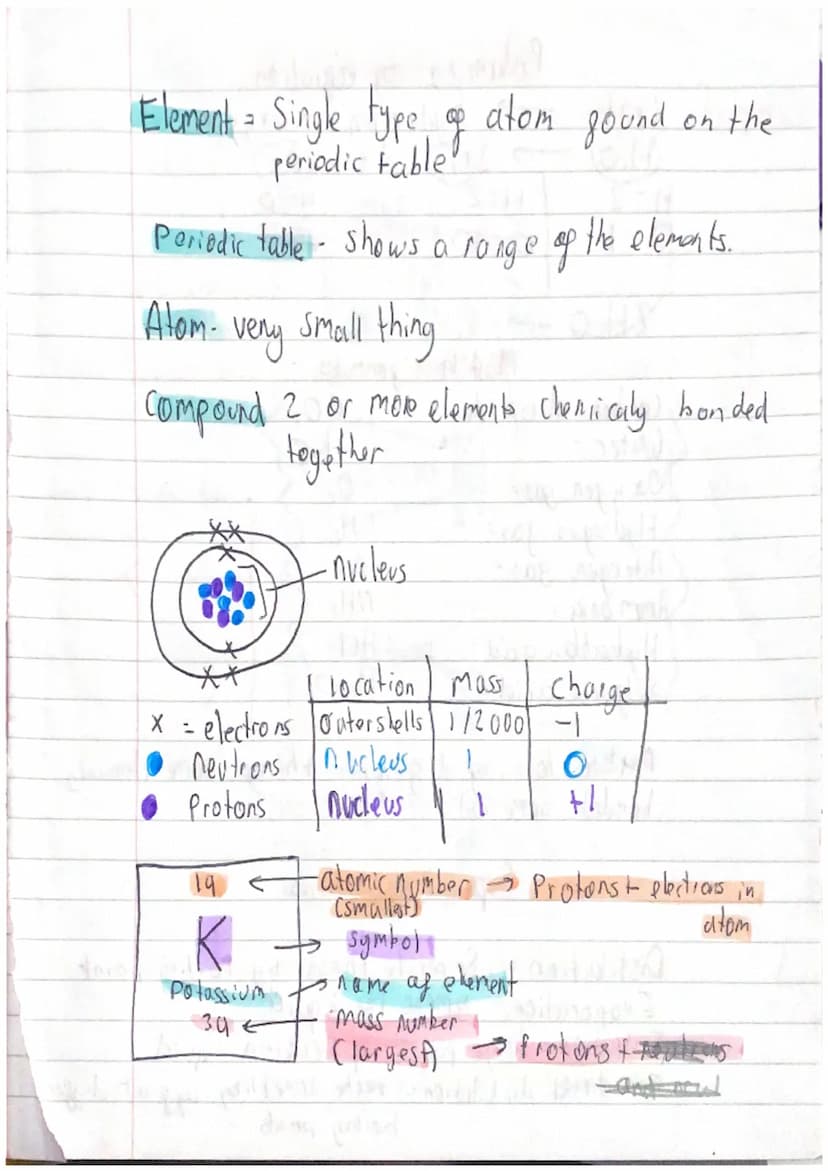 Element = Single type of atom gound on the
periodic table
Periodic table - shows a range of the elements.
Atom - very small thing
Compound 2 or more elements chemicaly bonded
together
nucleus
location Mass Charge
x = electrons outershells 1/2000 -1
neutrons nucleus 1 0
Protons nucleus 1 +1
19 ← atomic number → Protons + electrons in
(smallest) atom
K → symbol
Potassium → name of element
39 ← mass number
(largest) → protons + neutrons